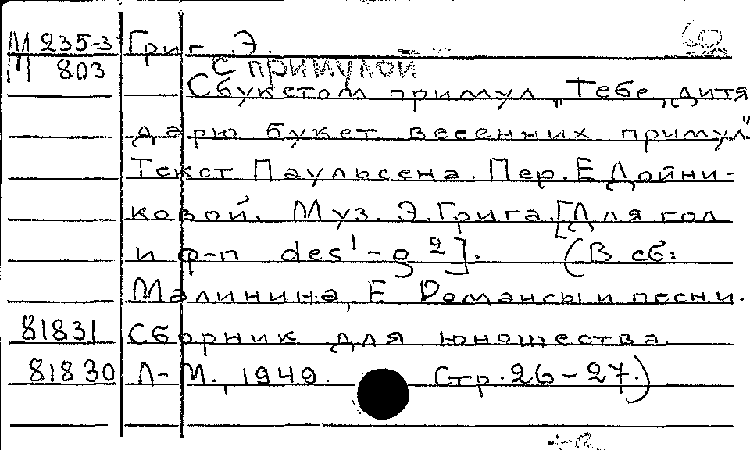 М 235-3 Григ Э.
М 803 С примулой
С букетом примул „Тебе, дитя
дарю букет весенних примул"
Текст Паульсена. Пер. Е Дойни-
ковой. Муз. Э. Грига. [Для гол
и ф-п des¹-g²]. (В сб:
Малинина, Е Романсы и песни.
81831 Сборник для юношества
81830 Л-М., 1949. Стр. 26-27.)